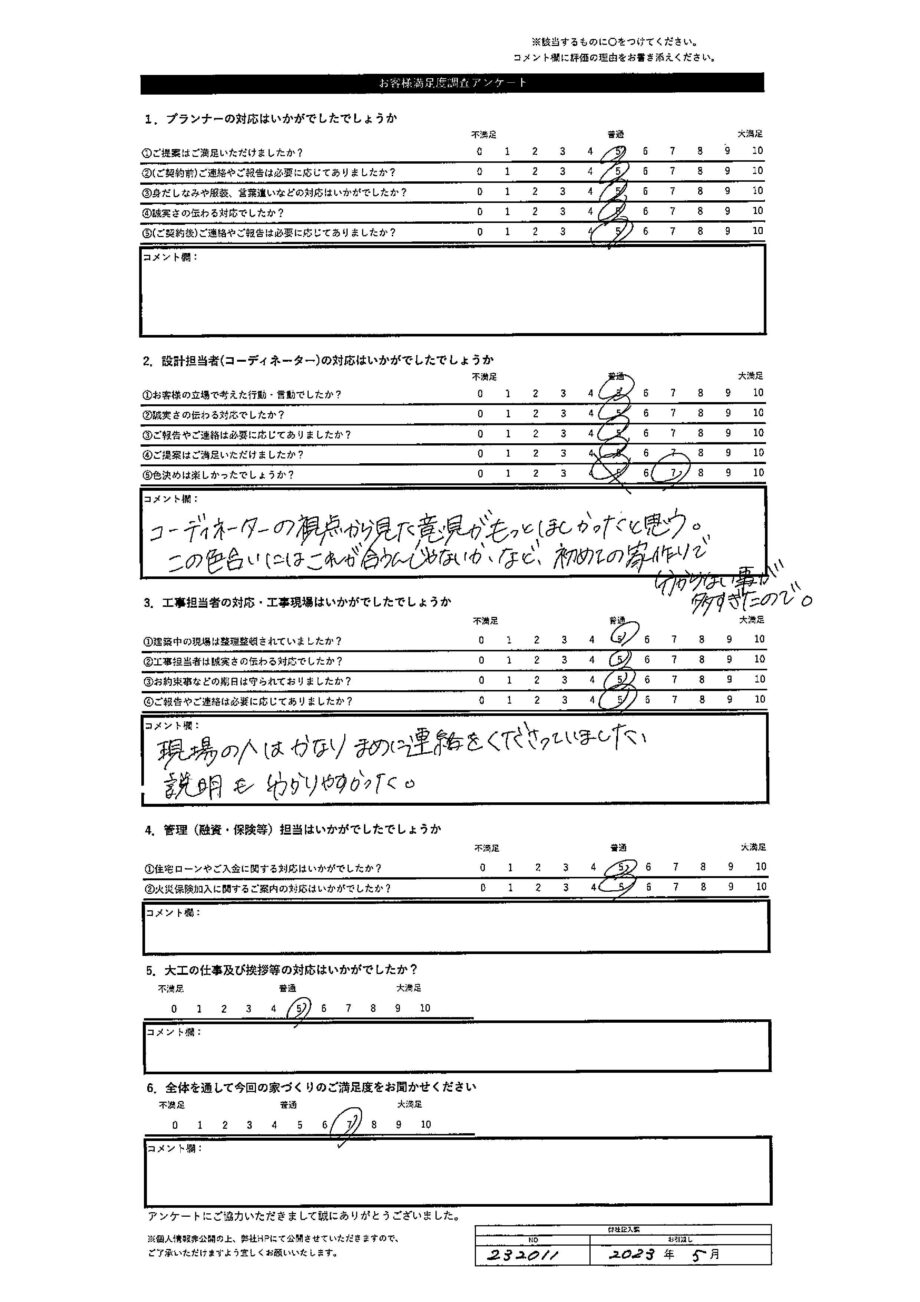 ※該当するものに○をつけてください。
コメント欄に評価の理由をお書き添えください。
お客様満足度調査アンケート
1．プランナーの対応はいかがでしたでしょうか
不満足 普通 大満足
①ご提案はご満足いただけましたか？ 0 1 2 3 4 5 6 7 8 9 10
②(ご契約前)ご連絡やご報告は必要に応じてありましたか？ 0 1 2 3 4 5 6 7 8 9 10
③身だしなみや服装、言葉遣いなどの対応はいかがでしたか？ 0 1 2 3 4 5 6 7 8 9 10
④誠実さの伝わる対応でしたか？ 0 1 2 3 4 5 6 7 8 9 10
⑤(ご契約後)ご連絡やご報告は必要に応じてありましたか？ 0 1 2 3 4 5 6 7 8 9 10
コメント欄：
2．設計担当者(コーディネーター)の対応はいかがでしたでしょうか
不満足 普通 大満足
①お客様の立場で考えた行動・言動でしたか？ 0 1 2 3 4 5 6 7 8 9 10
②誠実さの伝わる対応でしたか？ 0 1 2 3 4 5 6 7 8 9 10
③ご報告やご連絡は必要に応じてありましたか？ 0 1 2 3 4 5 6 7 8 9 10
④ご提案はご満足いただけましたか？ 0 1 2 3 4 5 6 7 8 9 10
⑤色決めは楽しかったでしょうか？ 0 1 2 3 4 5 6 7 8 9 10
コメント欄：
コーディネーターの視点から見た意見がもっとほしかったと思う。
この色合いにはこれが合うんじゃないか、など、初めての家作りで
分からない事が
多すぎたので。
3．工事担当者の対応・工事現場はいかがでしたでしょうか
不満足 普通 大満足
①建築中の現場は整理整頓されていましたか？ 0 1 2 3 4 5 6 7 8 9 10
②工事担当者は誠実さの伝わる対応でしたか？ 0 1 2 3 4 5 6 7 8 9 10
③お約束事などの期日は守られておりましたか？ 0 1 2 3 4 5 6 7 8 9 10
④ご報告やご連絡は必要に応じてありましたか？ 0 1 2 3 4 5 6 7 8 9 10
コメント欄：
現場の人はかなりまめに連絡をくださっていました、
説明も分かりやすかった。
4．管理（融資・保険等）担当はいかがでしたでしょうか
不満足 普通 大満足
①住宅ローンやご入金に関する対応はいかがでしたか？ 0 1 2 3 4 5 6 7 8 9 10
②火災保険加入に関するご案内の対応はいかがでしたか？ 0 1 2 3 4 5 6 7 8 9 10
コメント欄：
5．大工の仕事及び挨拶等の対応はいかがでしたか？
不満足 普通 大満足
0 1 2 3 4 5 6 7 8 9 10
コメント欄：
6．全体を通して今回の家づくりのご満足度をお聞かせください
不満足 普通 大満足
0 1 2 3 4 5 6 7 8 9 10
コメント欄：
アンケートにご協力いただきまして誠にありがとうございました。
※個人情報非公開の上、弊社HPにて公開させていただきますので、
ご了承いただけますよう宜しくお願いいたします。
弊社記入欄
NO お引渡し
232011 2023年 5月